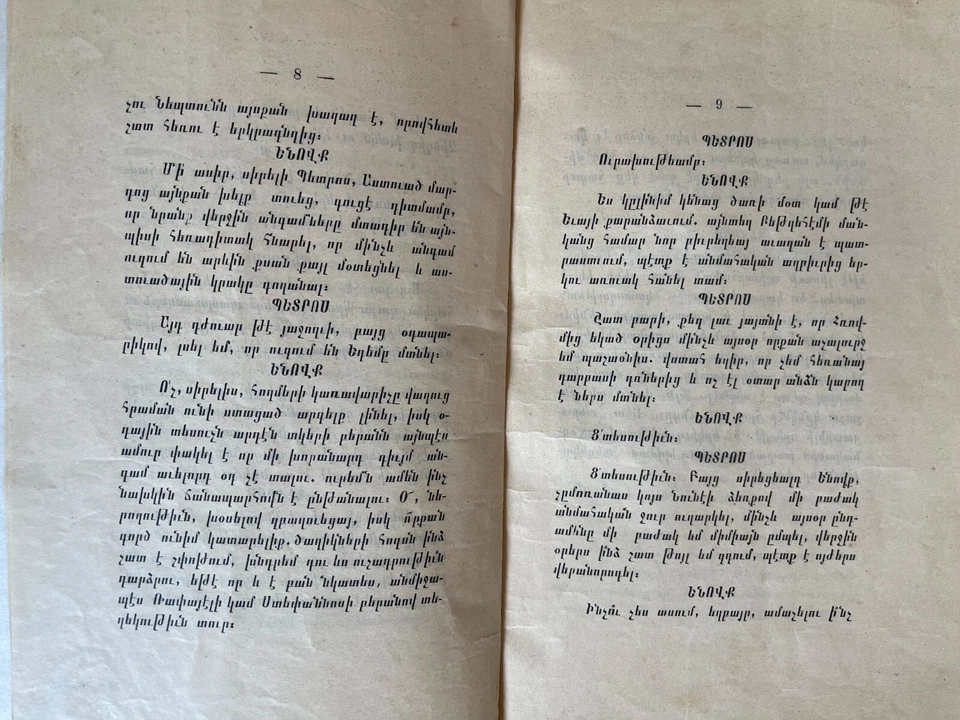 — 8 —
չու Նեպտունն այսքան խաղաղ է, որովհետև
շատ հեռու է երկրագնդից։
ԵՆՈՎՔ
Մի՛ ասիր, սիրելի Պետրոս, Աստուած մար-
դոց այնքան խելք տուեց, գուցէ դիտմամբ,
որ նրանք վերջին անգամները մտադիր են այն-
պիսի հեռադիտակ հնարել, որ մինչև անգամ
ուզում են արևին քսան քայլ մօտեցնել և աս-
տուածային կրակը գողանալ։
ՊԵՏՐՈՍ
Այդ դժուար թէ յաջողւի, բայց օդապա-
րիկով, լսել եմ, որ ուզում են Եդեմը մտնել։
ԵՆՈՎՔ
Ո՛չ, սիրելիս, հողմերի կառավարիչը վաղուց
հրաման ունի ստացած արգելք լինել, իսկ օ-
դային տեսուչն արդէն տկերի բերանն այնպէս
ամուր փակել է որ մի խորանարդ դիւյմ ան-
գամ աւելորդ օդ չէ տալու. ուրեմն ամեն ինչ
նախկին ճանապարհովն է ընթանալու։ Օ՜, նե-
րողութիւն, խօսելով զբաղուեցայ, իսկ ո՜րքան
գործ ունիմ կատարելիք. ծաղիկների հոգսն ինձ
շատ է շփոթում, խնդրեմ դու ևս ուշադրութիւն
դարձրու, եթէ որ և է բան նկատես, անմիջա-
պէս Ռափայէլի կամ Ստեփաննոսի բերանով տե-
ղեկութիւն տուր։
— 9 —
ՊԵՏՐՈՍ
Ուրախութեամբ։
ԵՆՈՎՔ
Ես կըլինիմ կենաց ծառի մօտ կամ թէ
Եւայի քարանձաւում. այնտեղ Բեթղեհէմի ման-
կանց համար նոր բիւրեղեայ աւազան է պատ-
րաստում, պէտք է անմահական աղբիւրից եր-
կու առուակ հանել տամ։
ՊԵՏՐՈՍ
Շատ բարի, քեզ լաւ յայտնի է, որ Հռով-
մից եկած օրիցս մինչև այսօր որքան աչալուրջ
եմ պաշտօնիս. վստահ եղիր, որ չեմ հեռանայ
դարբասի դռներից և ոչ էլ օտար անձն կարող
է ներս մտնել։
ԵՆՈՎՔ
Ց՛տեսութիւն։
ՊԵՏՐՈՍ
Ց՛տեսութիւն։ Բայց սիրեցեալդ Ենովք,
չըմոռանաս կոյս Նունէի ձեռքով մի բաժակ
անմահական ջուր ուղարկել, մինչև այսօր ընդ-
ամենը մի բաժակ եմ միմիայն ըմպել, վերջին
օրերս ինձ շատ թոյլ եմ զգում, պէտք է ոյժերս
վերանորոգել։
ԵՆՈՎՔ
Ինչո՞ւ չես ասում, եղբայր, ամաչելու ի՞նչ